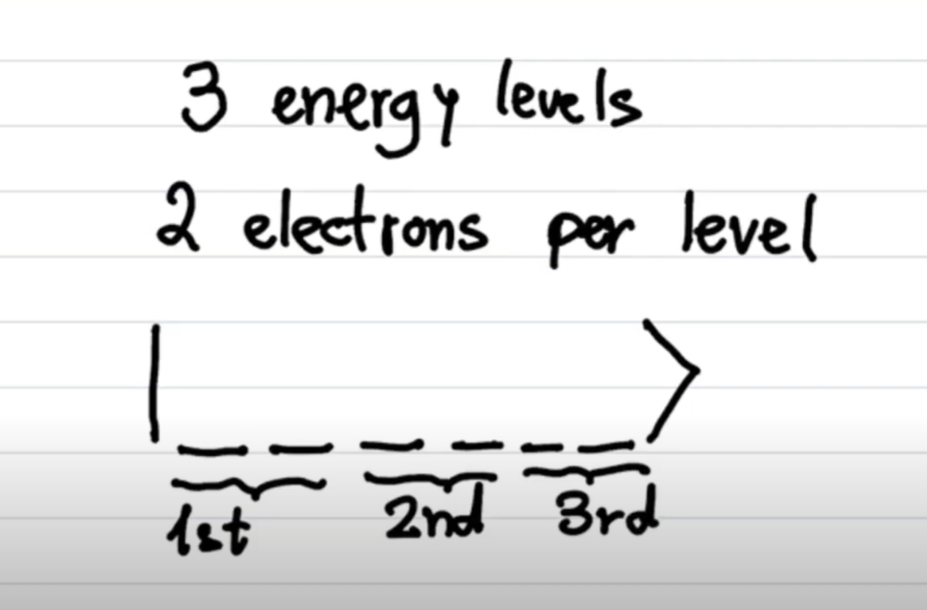 3 energy levels
2 electrons per level
| _ _ _ _ _ _ >
1st 2nd 3rd